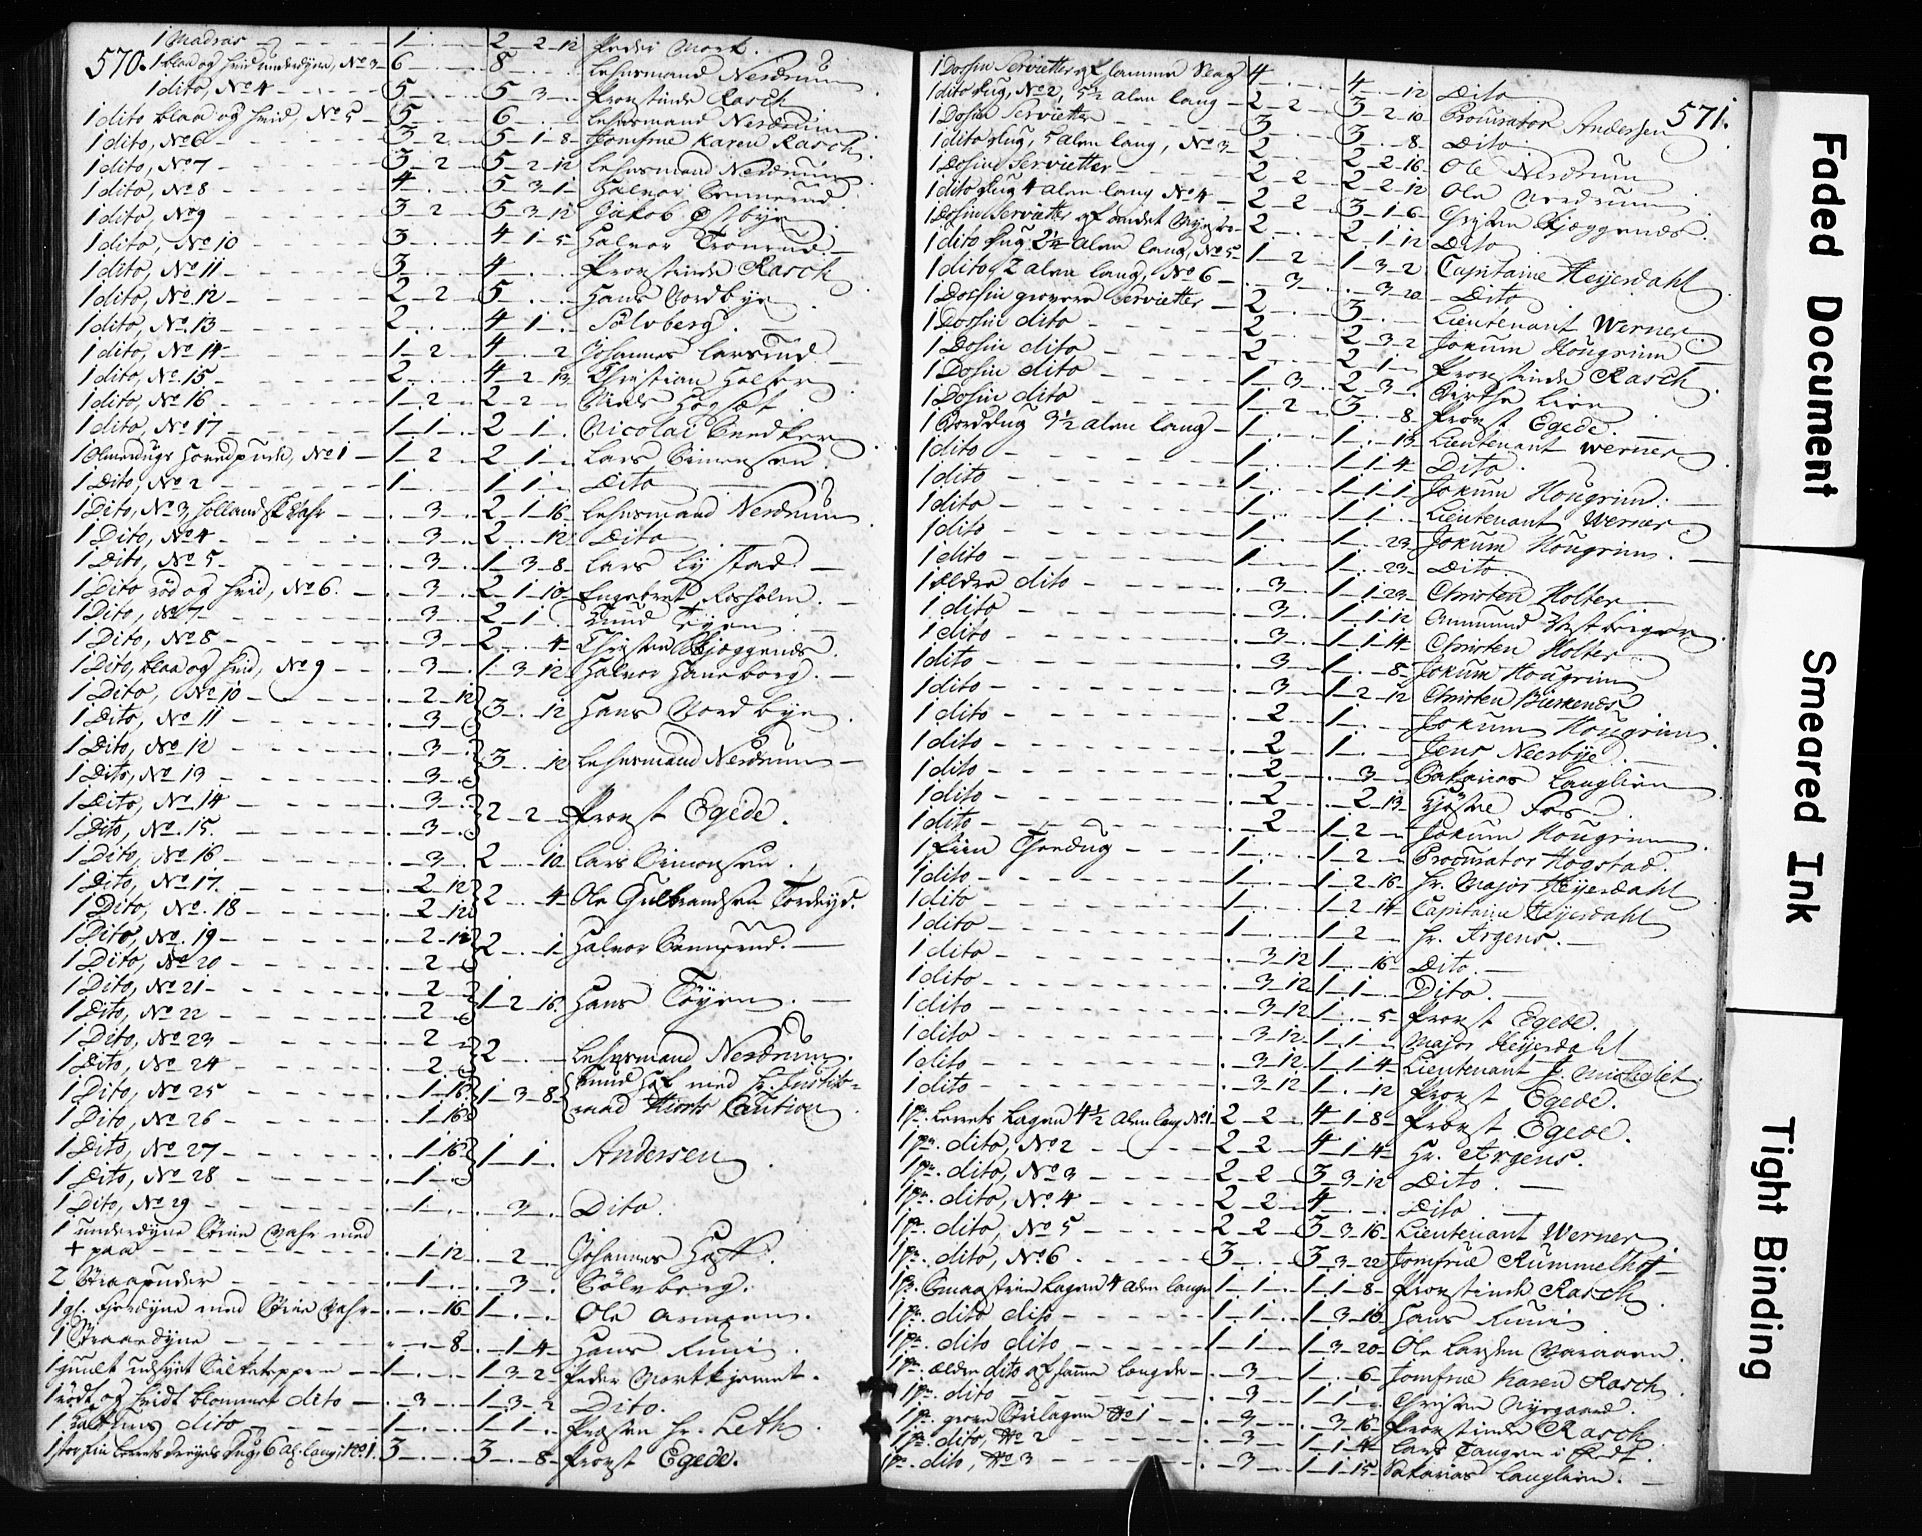 570.
1 Madras - - - 1 - . - 2 - 2 - 12 Peder Mork.
1 blaa og hvid underdyne, No 3 - 6 8 - . - Lehnsmand Nerdrum
1 dito, No 4 - - - 5 - . - 5 - 3 - . Provstinde Rasch
1 dito blaa og hvid, No 5 - 5 - . - 6 - . - Lehnsmand Nerdrum
1 dito, No 6 - - - 3 - 2 - 5 - 1 - 8 - Jomfrue Karen Rasch.
1 dito, No 7 - - - 3 - 2 - 5 - 2 - 12 Lehnsmand Nerdrum
1 dito, No 8 - - - 4 - . - 5 - 3 - 1 - Halvor
1 dito, No 9 - - - 3 - 2 - 5 - 3 - 12 Jakob Østbye
1 dito, No 10 - - - 3 - . - 4 - 1 - 5 - Halvor Tronrud
1 dito, No 11 - - - 3 - . - 4 - . - Provstinde Rasch
1 dito, No 12 - - - 2 - 2 - 5 - . - Hans Nordbye
1 dito, No 13 - - - 2 - . - 4 - 1 - . Sölvberg.
1 dito, No 14 - - - 1 - 2 - 4 - . - 2 Johannes Larsrud
1 dito, No 15 - - - 2 - . - 4 - 2 - 13 Christian Holter
1 dito, No 16 - - - 1 - 2 - 2 - 2 - Niels Hogsæt
1 dito, No 17 - - - 1 - 1 - . 2 - 1 - . Nicolai Snedker
1 Olmerdugs Hovedpude, No 1 - 1 - 2 - 2 - 1 - Lars Simensen
1 Dito, No 2 - - - 1 - . - 1 - 1 - Dito
1 Dito, No 3, Hollandsk Vahr - . - 3 - 2 - 1 - 16 - Lehnsmand Nerdrum
1 Dito, No 4 - - - . - 3 - 2 - . - 12 - Dito
1 Dito, No 5 - - - . - 3 - 1 - 3 - 8 - Lars Lystad.
1 Dito röd og hvid, No 6. - . - 3 - 2 - 1 - 10 - Engebret Rosholm.
1 Dito, No 7 - - - . - 3 - 2 - 1 - . Knud Tyen
1 Dito, No 8 - - - . - 3 - 2 - . - 4 - Christen Skjæggerud.
1 Dito, blaa og hvid, No 9 - . - 3 - 1 - 3 - 12 Halvor Haneborg.
1 Dito, No 10 - - - . - 2 - 12
1 Dito, No 11 - - - . - 3 - 3 - . - 12 Hans Nordbye
1 Dito, No 12 - - - . - 3 -
1 Dito, No 13 - - - . - 3 - 3 - . - 12 Lehnsmand Nerdrum
1 Dito, No 14 - - - . - 3 -
1 Dito, No 15. - - - . - 3 - 2 - 2 - Provst Egede.
1 Dito, No 16 - - - . - 3 - 2 - . - 10 Lars Simonsen.
1 Dito, No 17. - - - . - 2 - 12
1 Dito, No 18 - - - . - 2 - 12 2 - . - 4 - Ole Gulbrandsen Tordeyd.
1 Dito, No 19 - - - . - 2 - 12
1 Dito, No 20 - - - . - 2 - 2 - . - 1 - Halvor
1 Dito, No 21 - - - . - 2 -
1 Dito, No 22 - - - . - 2 - 1 - 2 - 16 Hans Töyen.
1 Dito, No 23 - - - . - 2 -
1 Dito, No 24 - - - . - 2 - 2 - . - Lehnsmand Nerdrum.
1 Dito, No 25 - - - . - 1 - 16 Knud Hof med Hr. Justits-
1 Dito, No 26 - - - . - 1 - 16 1 - 3 - 8 - raad Hiorts Caution
1 Dito, No 27 - - - . - 1 - 16
1 Dito, No 28 - - - . - 1 - 1 - 1 - . Andersen
1 Dito, No 29 - - - . - 1 - . - 3 - Dito.
1 underdyne Strie Vahr med
+ paa - - - . - 1 - 12 . - 2 - Johannes Hoff.
2 Straapuder - - - . - 1 - . - 3 - Sölvberg.
1 gl. Fjerdyne med Strie Vahr - . - . - 16 1 - . - Ole
1 Straaedyne - - - . - . - 8 - . - 1 - 4 - Hans Kuni
1 guult udsyet Silketeppen - 1 - . - 1 - 3 - 2 Peder Mortkjernet.
1 rödt og hvidt blommet dito - . - 3 - 1 - 3 - 2 Dito.
1 Kattuns dito - - - 1 - . - 1 - 1 - Præsten Hr. Leth
1 stor fiin Lærreds Dreyels Dug, 6 Al. lang, No 1. 3 - . - 3 - . - 8 - Provst Egede.
571.
1 Dossin Servietter af samme Slag 4 - . - 4 - . - 12 Dito
1 dito Dug, No 2, 5½ alen lang - 2 - 2 - 3 - 2 - 10 Procurator Andersen
1 Dosin Servietter - - - 3 - . - 3 - . - 8 - Dito
1 dito Dug, 5 alen lang, No 3 - 2 - . - 2 - 2 - 16 - Ole Nerdrum
1 Dosin Servietter - - - 2 - 2 - 2 - 2 - 12 Ole Nordrum
1 dito Dug 4 alen lang No 4 - 2 - 2 - 3 - 1 - 6 - Skjæggerud.
1 Dosin Servietter af Mynster 2 - . - 2 - 1 - 12 Dito
1 dito Dug 2½ alen lang, No 5 - 1 - 2 - 1 - 3 - 2 Capitaine Heyerdahl
1 dito, 2 alen lang, No 6 - . - 3 - . - 3 - 20 - Dito
1 Dossin grovere Servietter - 2 - . - 3 - . - Lieutenant Werner
1 Dossin dito - - - 2 - . - 2 - 3 - 2 Jokum Hougrim
1 Dosin dito - - - 2 - . - 2 - 1 - Provstinde Rasch
1 Dosin dito - - - 1 - 3 - 2 - 3 - Birthe Lien
1 Dosin dito - - - 1 - 2 - 3 - . - 8 - Provst Egede.
1 Borddug 3½ alen lang - 1 - . - 1 - . - 13 - Lieutenant Werner
1 dito - - - 1 - . - 1 - 1 - 4 - Dito.
1 dito - - - 1 - . - 1 - 1 - 1 - Jokum Hougrim.
1 dito - - - 1 - . - 1 - 1 - . Lieutenant Werner.
1 dito - - - 1 - . - 1 - . - 23 - Jokum Hougrim
1 dito - - - 1 - . - 1 - . - 23 - Dito
1 ældre dito - - - . - 3 - 1 - 1 - 23 - Christen Holter
1 dito - - - . - 3 - 1 - 1 - 12 Ammund Vestbrigen
1 dito - - - . - 3 - 1 - 1 - 14 - Christen Holter
1 dito - - - . - 3 - 1 - . - 8 - Jokum Hougrim
1 dito - - - . - 3 - 1 - 2 - 12 Christen Bierkenes
1 dito - - - . - 2 - 1 - . - Jokum Hougrim
1 dito - - - . - 2 - 1 - . - Jens Neersbÿe.
1 dito - - - . - 2 - . - 3 - Sakarias Langlien
1 dito - - - . - 2 - . - 2 - 13 - Gjöstre Fos
1 dito - - - . - 2 - 1 - 2 - Jokum Hougrim
1 Liin Theedug - - - 1 - . - 1 - 2 - Procurator Hogstad.
1 dito - - - 1 - . - 1 - 2 - 16 - Hr. Major Heÿerdahl
1 dito - - - 1 - . - 1 - 2 - 14 - Capitaine Heÿerdahl
1 dito - - - 1 - . - 1 - 2 - Hr. Argens.
1 dito - - - . - 3 - 12 1 - . - 16 - Dito.
1 dito - - - . - 3 - 12 1 - 1 - . Dito.
1 dito - - - . - 3 - 12 1 - . - 5 - Provst Egede.
1 dito - - - . - 3 - 12 1 - 1 - Major Heÿerdahl
1 dito - - - . - 3 - 12 1 - 1 - 4 - Lieutenant J. Michelet
1 dito - - - . - 3 - 12 1 - . - 12 Provst Egede.
1 pr. Lerrets Lagen 4½ Alen lang No 1 2 - 2 - 4 - 1 - 8 - Provst Egede.
1 pr. dito, No 2 - - - 2 - 2 - 4 - 1 - 4 - Hr. Argens.
1 pr. dito, No 3 - - - 2 - 2 - 3 - 3 - 12 Dito.
1 pr. dito, No 4 - - - 2 - 2 - 4 - . - Dito
1 pr. dito, No 5 - - - 2 - 2 - 3 - 3 - 16 - Lieutenant Werner.
1 pr. dito, No 6 - - - 3 - . - 3 - 3 - 22 Jomfrue Rummelhof
1 pr. Smaastrie Lagen 4 alen lange 1 - 1 - 1 - 1 - 8 - Provstinde Rasch
1 pr. dito dito - - - 1 - 1 - 1 - 3 - 16 Hans Kuni
1 pr. dito dito - - - 1 - 1 - 1 - 3 - 20 - Ole Larsen
1 pr. ældre dito af samme Længde - . - 3 - 1 - . - 6 - Jomfrue Karen Rasch
1 pr. dito - - - . - 3 - 1 - 1 - Christen Nÿegaard.
1 pr. grove Strilagen No 1 - . - 3 - . - 3 - 16 - Provstinde Rasch
1 pr. dito, No 2 - - - . - 3 - 1 - 1 - 4 - Lars Tangen i
1 pr. dito, No 3 - - - . - 3 - 1 - 1 - 15 - Sakarias Langlien.
Faded Document
Smeared Ink
Tight Binding